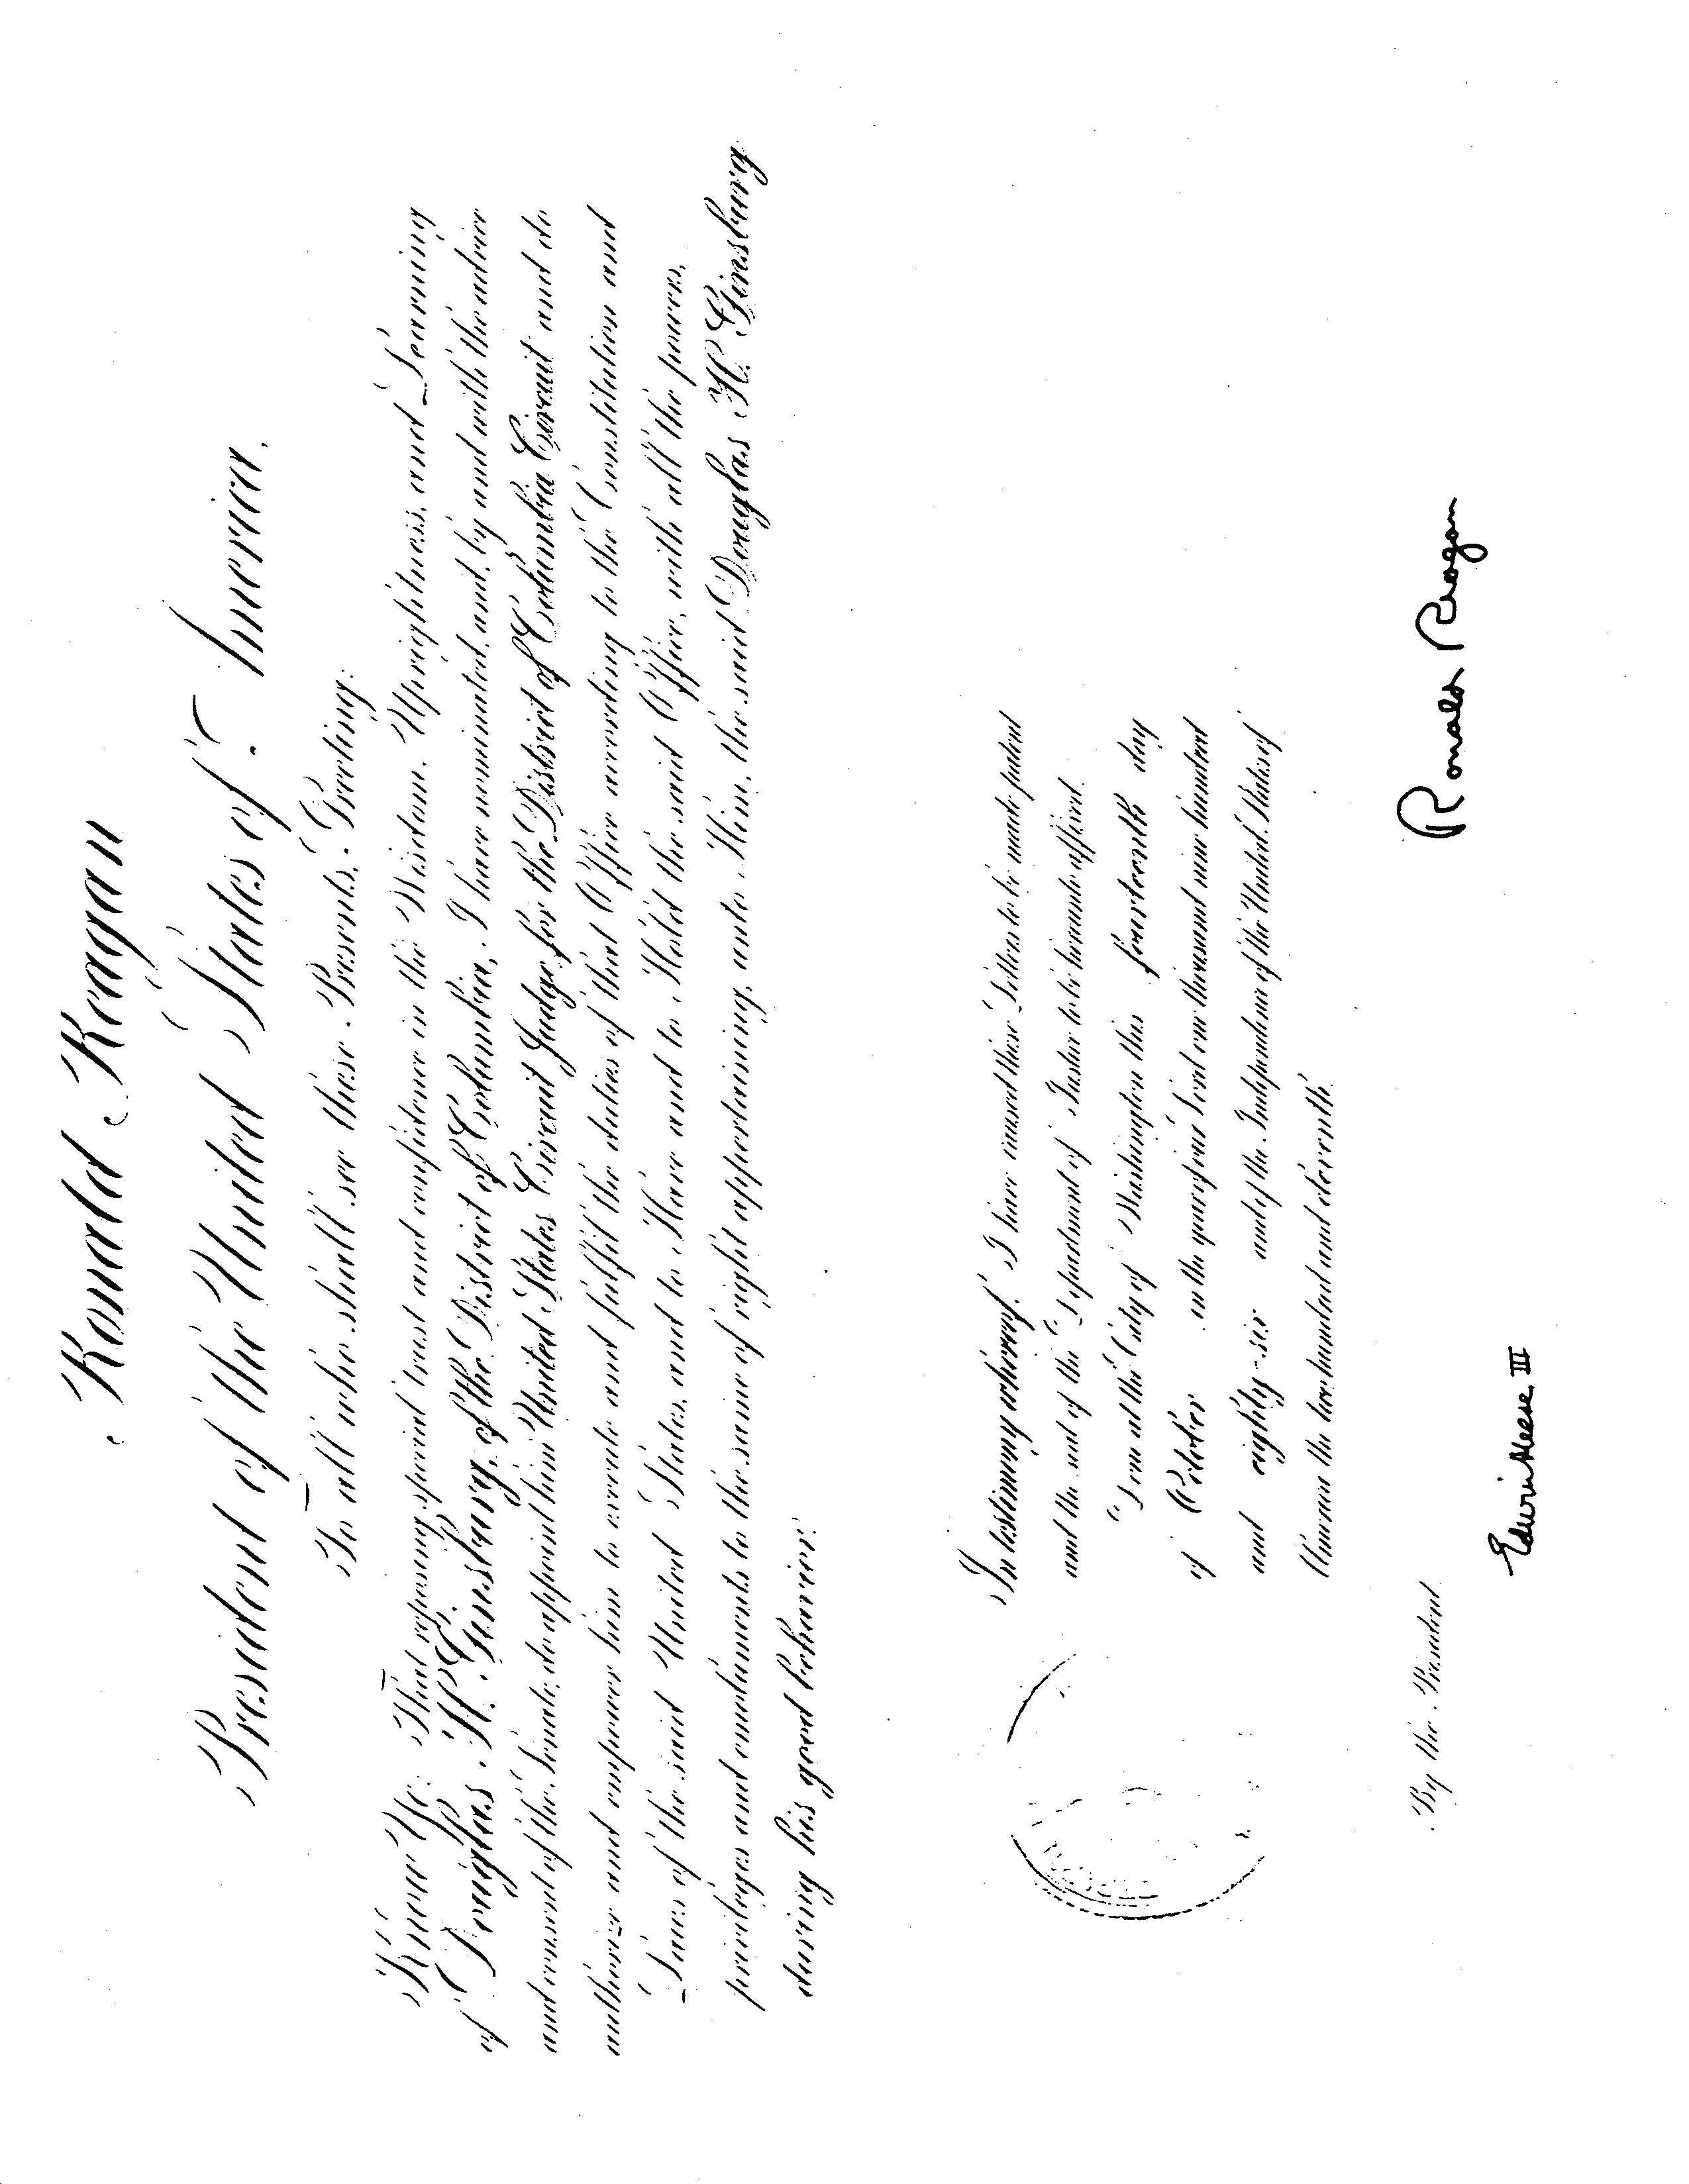 Ronald Reagan
President of the United States of America.
To all who shall see these Presents, Greeting:
Know Ye: That reposing special trust and confidence in the Wisdom, Uprightness, and Learning
of Douglas H. Ginsburg, of the District of Columbia, I have nominated, and, by and with the advice
and consent of the Senate, do appoint him United States Circuit Judge for the District of Columbia Circuit and do
authorize and empower him to execute and fulfil the duties of that Office according to the Constitution and
Laws of the said United States, and to Have and to Hold the said Office, with all the powers,
privileges and emoluments to the same of right appertaining, unto Him, the said Douglas H. Ginsburg
during his good behavior.
In testimony whereof, I have caused these Letters to be made patent
and the seal of the Department of Justice to be hereunto affixed.
Done at the City of Washington this fourteenth day
of October in the year of our Lord one thousand nine hundred
and eighty-six and of the Independence of the United States of
America the two hundred and eleventh.
Ronald Reagan
By the President
Edwin Meese III